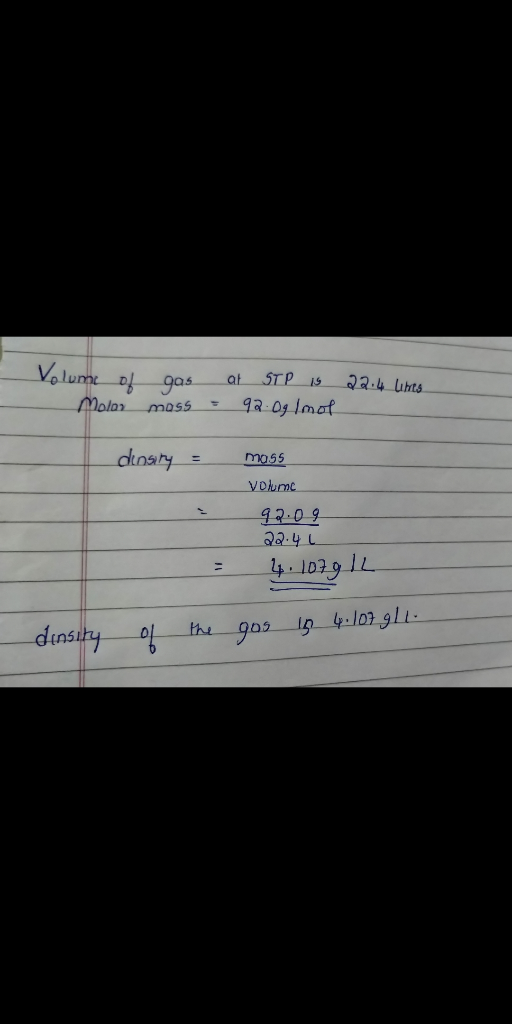 Volume of gas at STP is 22.4 litres
Molar mass = 92.0g/mol
density = mass
volume
= 92.0 g
22.4 L
= 4.107 g/L
density of the gas is 4.107 g/L.